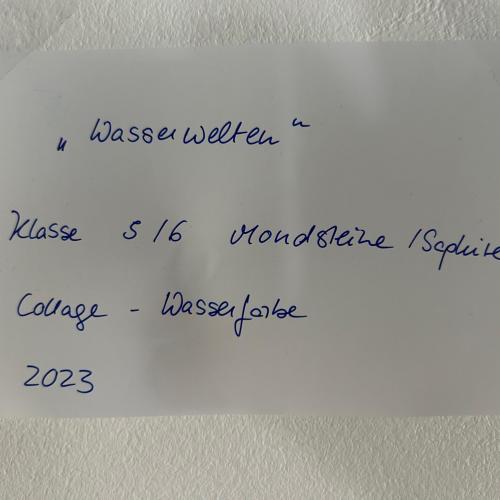 „Wasserwelten“
Klasse 5/6 Mondsteine /Saphire
Collage - Wasserfarbe
2023